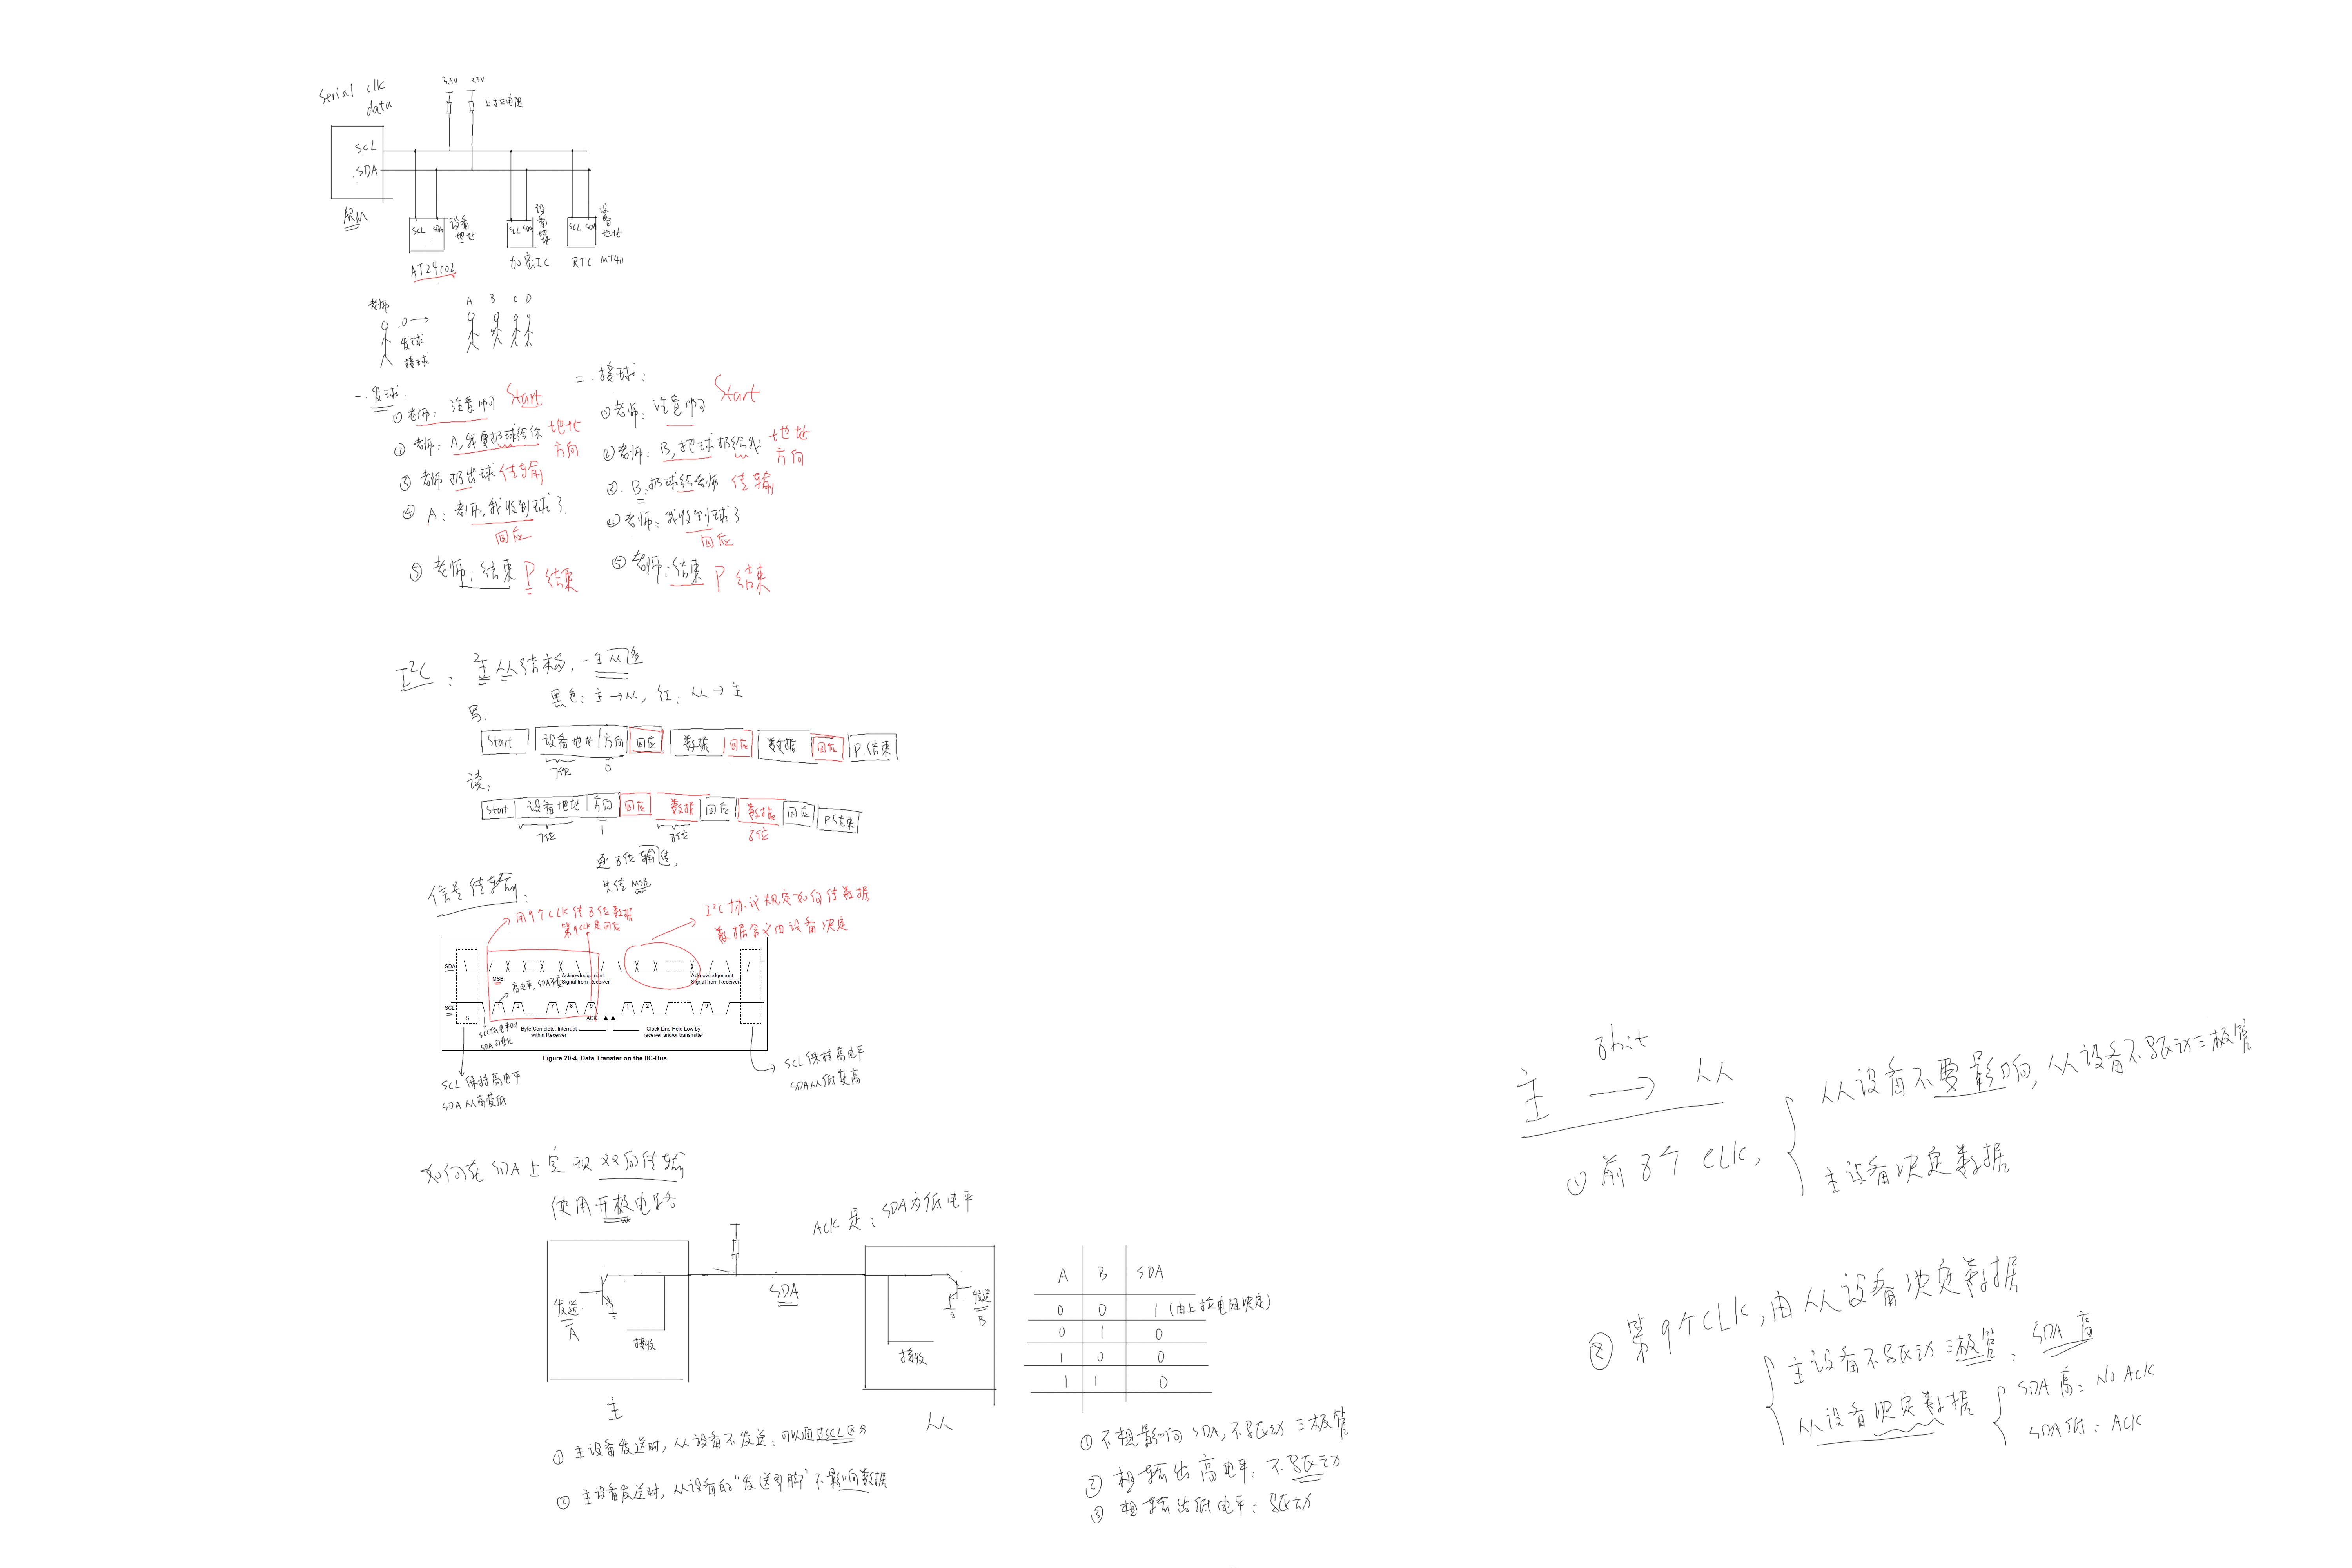 Serial clk
data
3.3V 3.3V
上拉电阻
SCL
SDA
ARM
SCL SDA
设备地址
AT24C02
SCL SDA
设备地址
加密IC
SCL SDA
设备地址
RTC
老师
发球
接球
A B C D
一.发球:
①老师: 注意啊 Start
②老师: A,我要扔球给你 地址 方向
③老师扔出球 传输
④A: 老师,我收到球了
回应
⑤老师: 结束 P 结束
二.接球:
①老师: 注意啊 Start
②老师: B,把球扔给我 地址 方向
③. B:扔球给老师 传输
④老师: 我收到球了
回应
⑤老师: 结束 P 结束
I²C : 主从结构, 一主从多
黑色: 主→从, 红: 从→主
写:
Start 设备地址 方向 回应 数据 回应 数据 回应 P 结束
7位 0
读:
Start 设备地址 方向 回应 数据 回应 数据 回应 P结束
7位 1 8位 8位
逐8位传输,
先传MSB
信号传输:
用9个CLK传8位数据
第9CLK是回应
I²C协议规定如何传数据
数据含义由设备决定
SDA
MSB
Acknowledgement
Signal from Receiver
Acknowledgement
Signal from Receiver
高电平, SDA不变
SCL
S
1 2 7 8 9 1 2 9
ACK
SCL低电平时
SDA可变化
Byte Complete, Interrupt
within Receiver
Clock Line Held Low by
receiver and/or transmitter
Figure 20-4. Data Transfer on the IIC-Bus
SCL保持高电平
SDA从高变低
SCL保持高电平
SDA从低变高
如何在SDA上实现双向传输
使用开极电路
ACK是: SDA为低电平
发送
A
接收
SDA
发送
B
接收
主
从
A B SDA
0 0 1 (由上拉电阻决定)
0 1 0
1 0 0
1 1 0
①主设备发送时, 从设备不发送: 可以通过SCL区分
②主设备发送时, 从设备的"发送引脚"不影响数据
①不想影响SDA, 不驱动三极管
②想输出高电平: 不驱动
③想输出低电平: 驱动
8bit
主 → 从
①前8个CLK,
从设备不要影响, 从设备不驱动三极管
主设备决定数据
②第9个CLK, 由从设备决定数据
主设备不驱动三极管: SDA高
从设备决定数据
SDA高: No ACK
SDA低: ACK